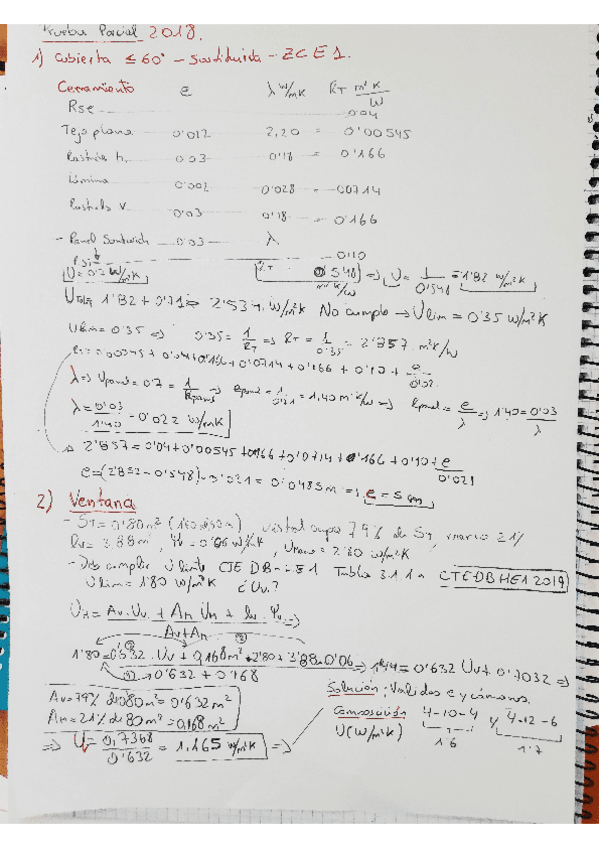 Pruebas Parcial 2018.
1) Cubierta ≤ 60° - Sustituida - ZC E1.
Cerramiento e λ W/mK RT m²K/W
Rse 0'04
Teja plana 0'012 2,20 = 0'00545
Rastrela h. 0'03 0'18 = 0'166
Lámina 0'002 0'028 = 0'0714
Rastrela V. 0'03 0'18 = 0'166
- Panel Sandwich 0'03 λ
Rsi 0'10
U=0'7 W/m²K RT 0'548 m²K/W => U= 1/0'548 = 1'82 W/m²K
1'82 + 0'71 = 2'534 W/m²K No cumple → Ulim = 0'35 W/m²K
Ulim = 0'35 => 0'35 = 1/RT => RT = 1/0'35 = 2'857 m²K/W
RT = 0'00545 + 0'04 + 0'166 + 0'0714 + 0'166 + 0'10 + e/0'02
λ => Upanel = 0'7 = 1/Rpanel => Rpanel = 1/0'71 = 1,40 m²K/W => Rpanel = e/λ => 1'40 = 0'03/λ
λ = 0'03/1'40 = 0'022 W/mK
2'857 = 0'04 + 0'00545 + 0'166 + 0'0714 + 0'166 + 0'10 + e/0'021
e = (2'857 - 0'548) · 0'021 = 0'0485m => e = 5 cm
2) Ventana
- ST = 0'80 m² vidrio ocupa 79% de ST, marco 21%
lv = 3'88 m, Ψv = 0'06 W/mK, Umarco = 2'80 W/m²K
- Debe cumplir Ulimite CTE DB-HE1 Tabla 3.1.1a CTE DB HE1 2019
Ulim = 1'80 W/m²K ¿Uv?
UH = Av·Uv + Am Um + lv · Ψv / Av + Am =>
1'80 = 0'632 · Uv + 0,168m² · 2'80 + 3'88 · 0'06 / 0'632 + 0'168 => 1'44 = 0'632 Uv + 0'7032 =>
Av = 79% de 0'80 m² = 0'632 m²
Am = 21% de 80 m² = 0,168 m²
Solución: Validos e y cámaras.
Composición 4-10-4 y 4-12-6
U (W/m²K) 1'6 1'7
=> U = 0,7368/0'632 = 1,165 W/m²K =>